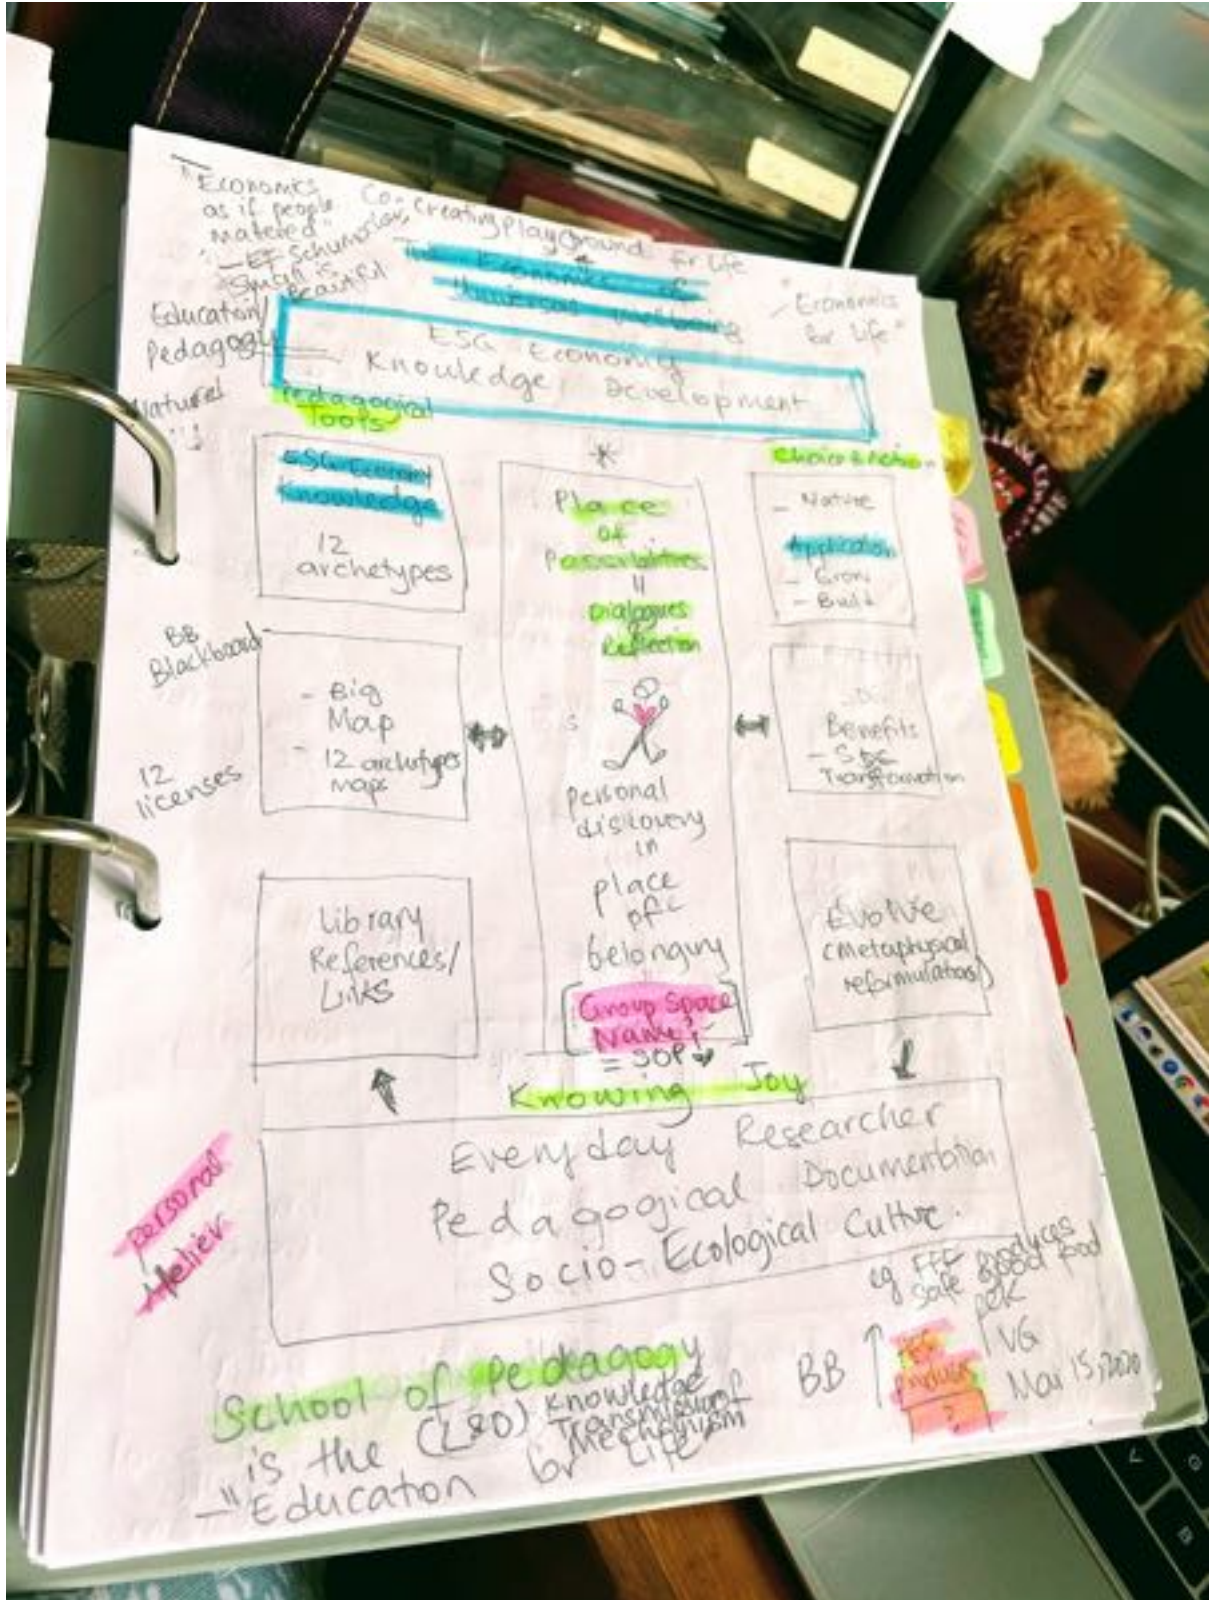 "Economics
as if people
matered"
— EF Schumacher
Small is
Beautiful
Co-creating playground for life
The Economics of
Universal wellbeing
"Economics
for Life"
Education/
Pedagogy
Nature
ESG Economy
Knowledge Development
Pedagogical
Tools
ESG Economy
Knowledge
12
archetypes
BB
Blackboard
- Big
Map
- 12 archetypes
maps
12
licenses
Library
References/
Links
Place
of
Possibilities
=
Dialogues
Reflection
personal
discovery
in
place
of
belonging
Group Space
Name?
= SOP
Choice & Action
- Nature
Application
- Grow
- Build
Benefits
Transformation
Evolve
(Metaphysical
reformulation)
Knowing Joy
Everyday Researcher
Pedagogical Documentation
Socio-Ecological Culture.
Personal
Atelier
eg FFF produces
safe good food
VG
Mai 15, 2020
BB
product
?
School of Pedagogy
is the (L&D) Knowledge
Transmission
Mechanism
- "Education for Life"